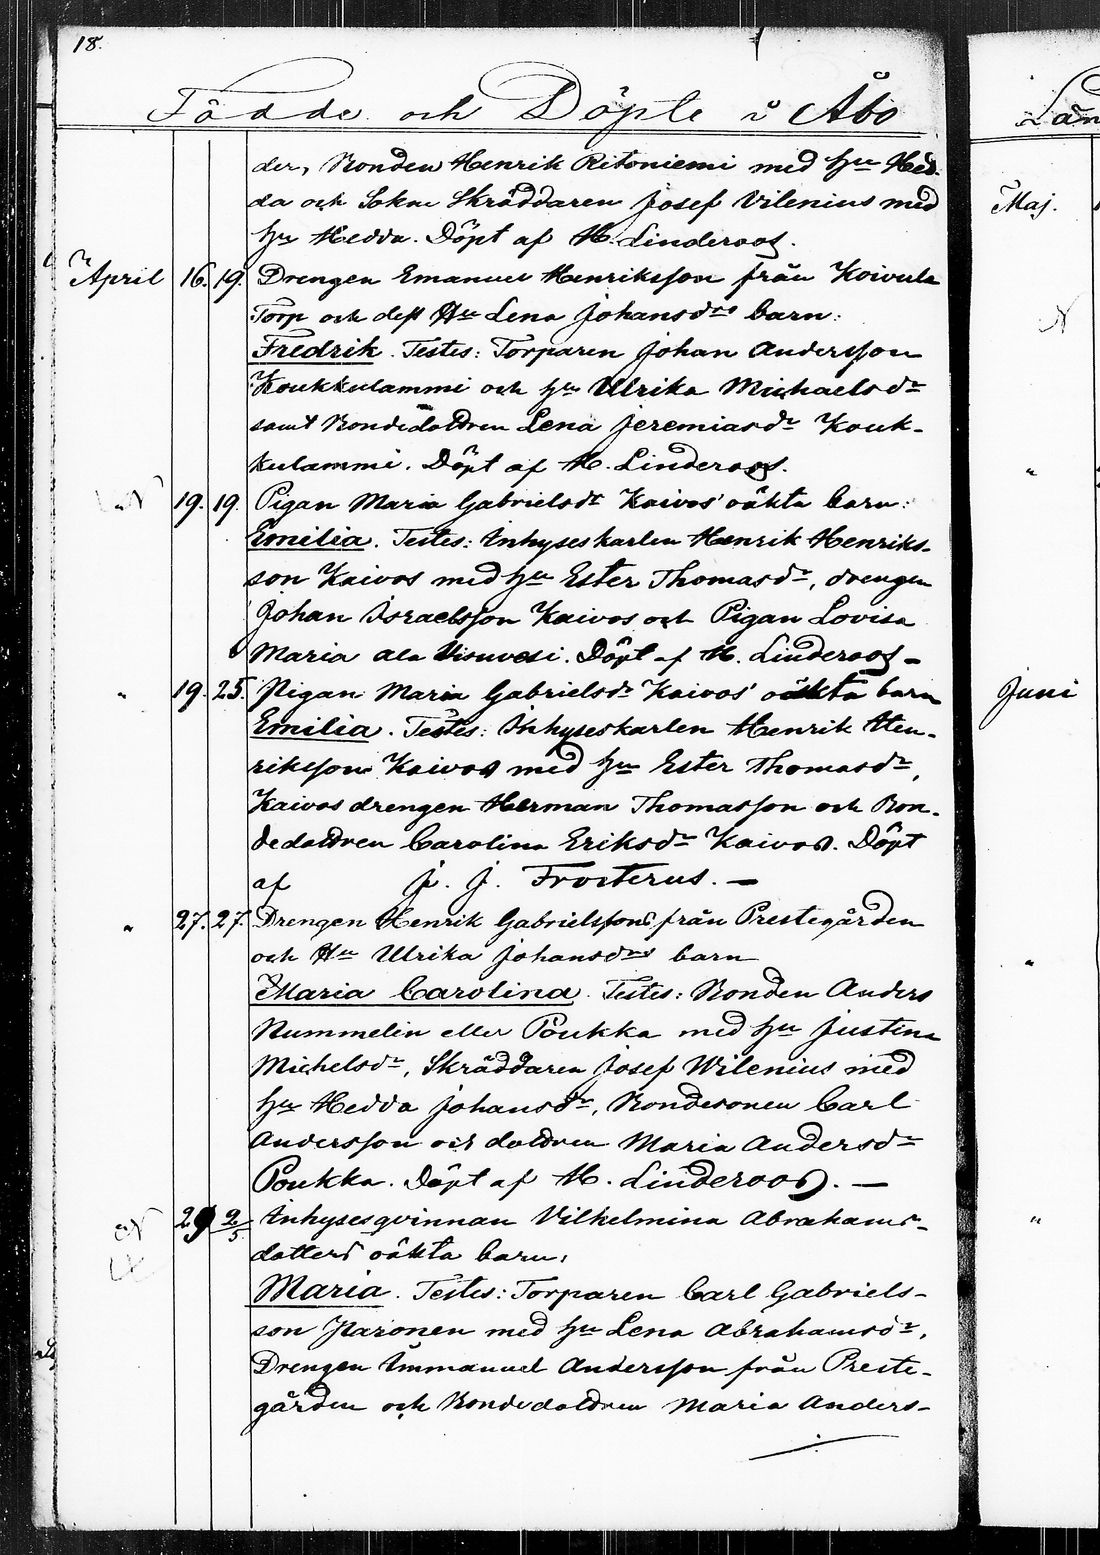 18.
Födde och Döpte i Åbo
der, Bonden Henrik Ritoniemi med hu Hed-
da och Sokne Skräddaren Josef Vilenius med
hu Hedda. Döpt af H. Linderoos.
April 16. 19. Drengen Emanuel Henriksson från Koivula
Torp och dess Hu Lena Johansdrs barn:
Fredrik. Testes: Torparen Johan Andersson
Koukkulammi och hu Ulrika Michaelsdr
samt Bondedottren Lena Jeremiasdr Kouk-
kulammi. Döpt af H. Linderoos.
19. 19. Pigan Maria Gabrielsdr Kaivos' oäkta barn:
Emilia. Testes: Inhyseskarlen Henrik Henriks-
son Kaivos med hu Ester Thomasdr, drengen
Johan Israelsson Kaivos och Pigan Lovisa
Maria Ala Visuvesi. Döpt af H. Linderoos –
" 19. 25. Pigan Maria Gabrielsdr Kaivos' oäkta barn
Emilia. Testes: Inhyseskarlen Henrik Hen-
riksson Kaivos med hu Ester Thomasdr,
Kaivos drengen Herman Thomasson och Bon-
dedottren Carolina Eriksdr Kaivos. Döpt
af J. J. Frosterus. –
" 27. 27. Drengen Henrik Gabrielssons från Prestegården
och Hu Ulrika Johansdrs barn
Maria Carolina. Testes: Bonden Anders
Nummelin eller Poukka med hu Justina
Michelsdr, Skräddaren Josef Wilenius med
hu Hedda Johansdr, Bondesonen Carl
Andersson och dottren Maria Andersdr
Poukka. Döpt af H. Linderoos. –
29 2/5 Inhysesqvinnan Vilhelmina Abrahams-
dotters oäkta barn:
Maria. Testes: Torparen Carl Gabriels-
son Paronen med hu Lena Abrahamsdr,
Drengen Immanuel Andersson från Preste-
gården och Bondedottren Maria Anders-
Län
Maj.
"
"
Juni
"
"